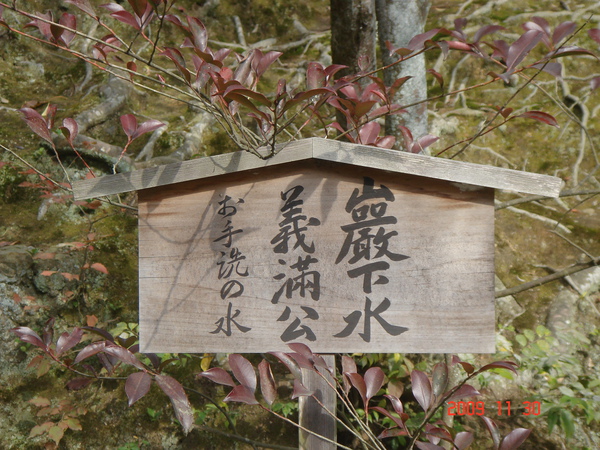 巖下水
義満公
お手洗の水
2009 11 30